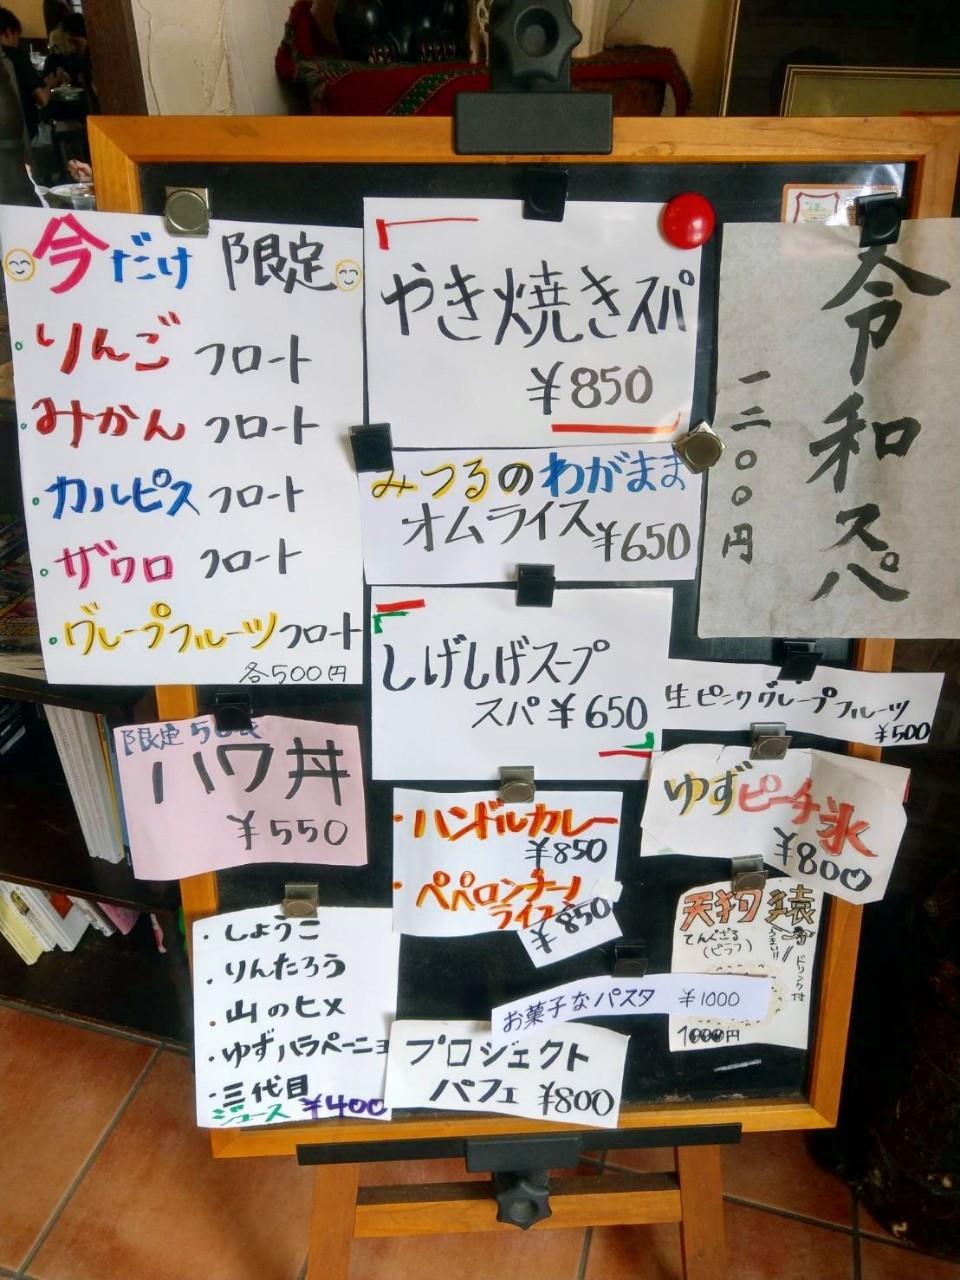 今だけ 限定
・りんご フロート
・みかん フロート
・カルピス フロート
・ザクロ フロート
・グレープフルーツフロート
各500円
やき焼きスパ
¥850
令和スパ
一二〇〇円
みつるのわがまま
オムライス ¥650
しげしげスープ
スパ ¥650
生ピンクグレープフルーツ
¥500
限定
ハワ丼
¥550
・ハンドルカレー
¥850
・ペペロンチーノ
ライス
¥850
ゆずピーチ氷
¥800
天狗猿
てんぐざる
(ピラフ)
うまい!!
ドリンク付
1000円
・しょうこ
・りんたろう
・山のヒメ
・ゆずハラペーニョ
・三代目
ジュース ¥400
お菓子なパスタ ¥1000
プロジェクト
パフェ ¥800